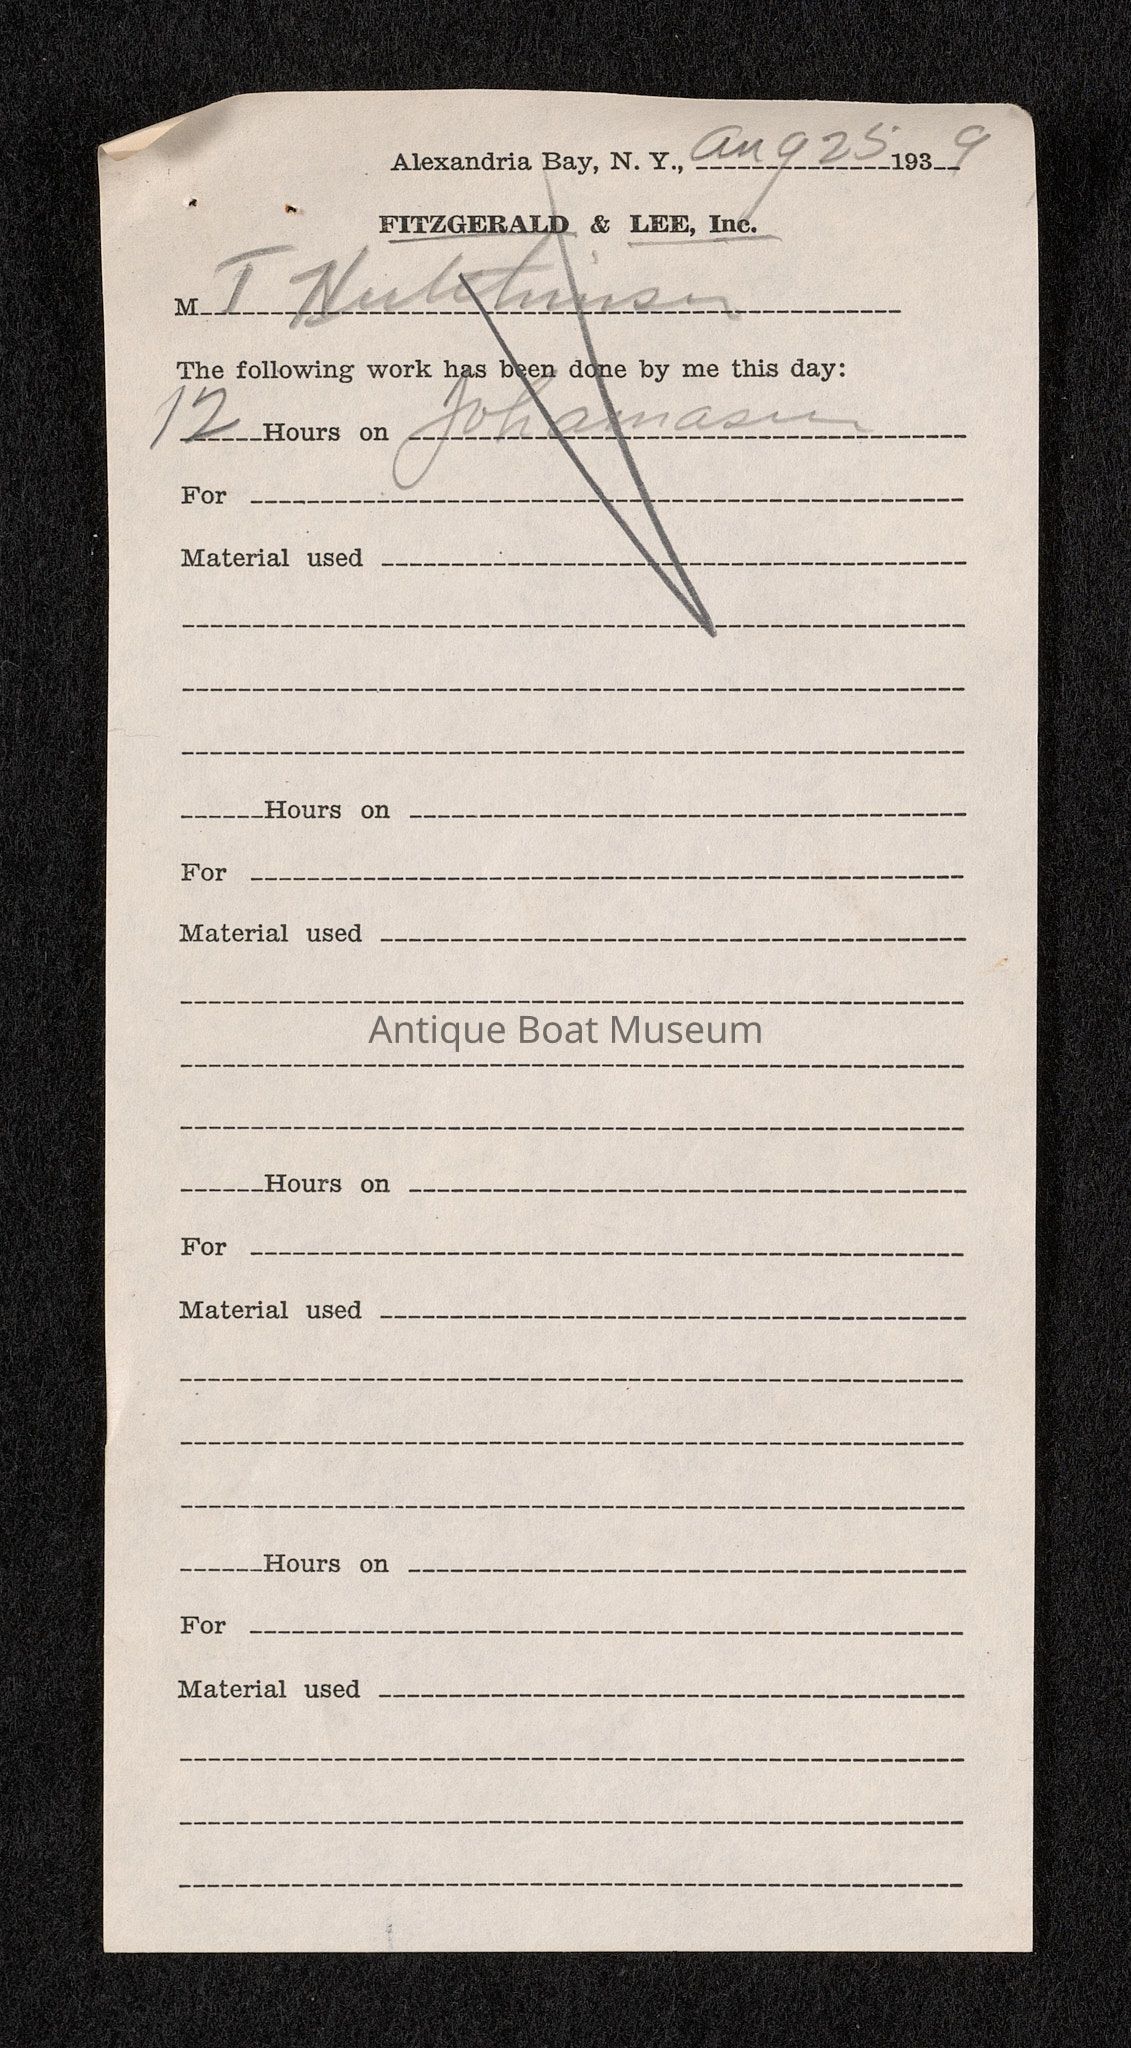 Alexandria Bay, N. Y., Aug 25 1939
FITZGERALD & LEE, Inc.
M T Hutchinson
The following work has been done by me this day:
12 Hours on
For
Material used
Hours on
For
Material used
Antique Boat Museum
Hours on
For
Material used
Hours on
For
Material used